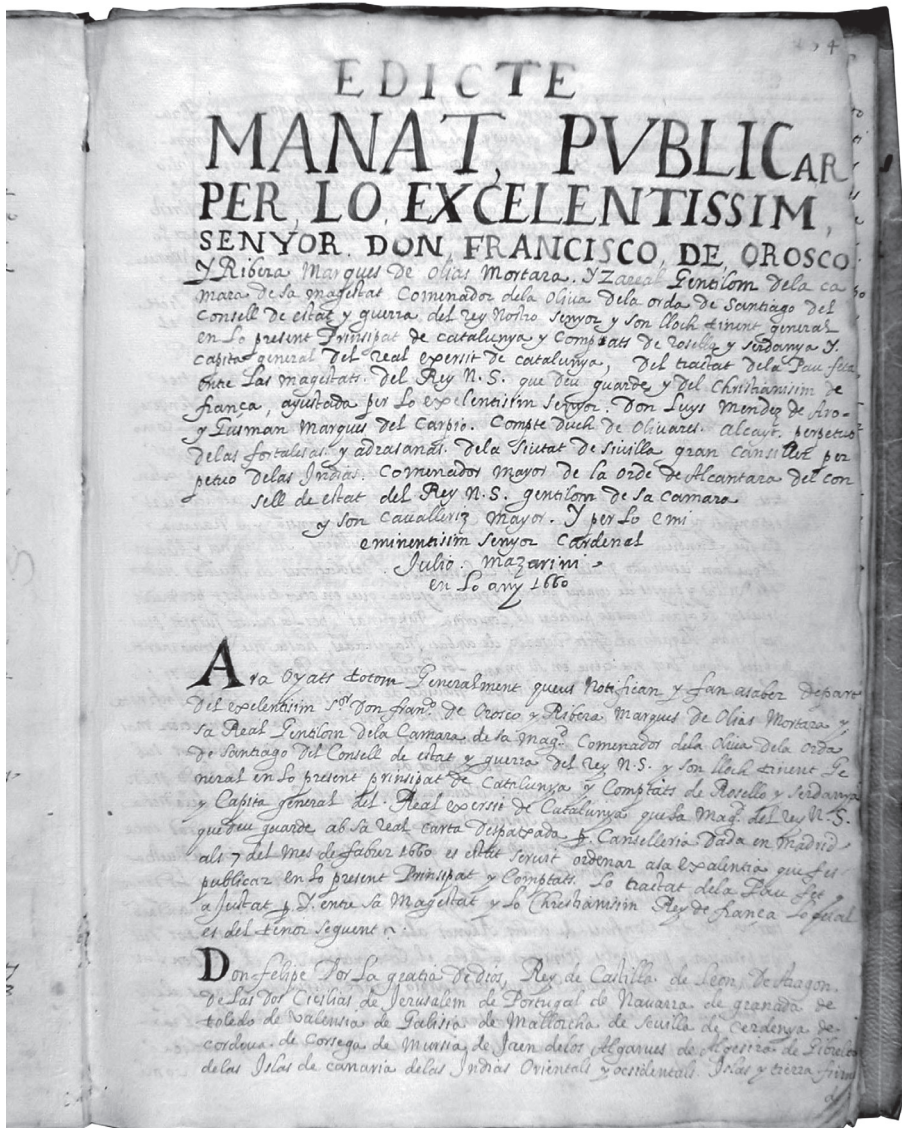 EDICTE
MANAT, PVBLICAR
PER, LO, EXCELENTISSIM,
SENYOR. DON, FRANCISCO, DE, OROSCO
Y Ribera Marques de Olias Mortara. Y Zareal Gentilom dela ca
mara de sa magestat Comenador dela Oliva dela orda de Santiago del
Consell de estat y guerra del rey Nostro senyor y son lloch tinent general
en Lo present Prinsipat de catalunya y Comptats de rosello y serdanya Y.
capita general Del real exersit de catalunya, Del tractat dela Pau feta
entre Las magestats. del Rey N.S. que deu guarde y del Christianisim de
frança, ajustada per Lo exelentisim senyor. Don Luys Mendez de Aro-
y Gusman Marques del Carpio. Compte Duch de Olivares. Alcayt. perpetuo
delas fortalesas y adrasanas. dela Siutat de Sivilla gran Canciller per
petuo delas Indias. Comenador mayor de la orde de Alcantara del con
sell de estat del Rey N.S. gentilom de sa camara
y son cavalleriz mayor. Y per Lo emi
eminentisim senyor Cardenal
Julio. Mazarini
en Lo any 1660
Ara Oyats totom Generalment queus Notifican y fan asaber de part
Del exelentisim Sor Don franco de Orosco y Ribera Marques de Olias Mortara y
sa Real Gentilom dela Camara de sa Magt. Comenador dela Oliva dela orda
de Santiago Del Consell de estat y guerra del Rey N.S. y son lloch tinent Ge
neral en Lo present prinsipat de Catalunya y Comptats de Rosello y serdanya
y Capita general del Real exerssit de Catalunya que sa Magt. del rey N.S.
que deu guarde ab sa real carta Despatxada p. Canselleria Dada en Madrid
als 7 del Mes de fabrer 1660 es estat servit ordenar asa exalentia que fes
publicar en Lo present Prinsipat y Comptats. Lo tractat dela Pau fet
ajustat p. Y. entre sa Magestat y Lo Christianisim Rey de frança Lo qual
es del tenor seguent
Don felipe Por La gratia De dios, Rey de Castilla de Leon, De Aragon.
De Las Dos Cicilias de Jerusalem de Portugal de Navarra de granada de
toledo de Valensia de Galisia de Mallorcha de Sevilla de Cerdenya de
cordova de Corsega de Mursia de Jaen delos Algarves de Algesira de Gibralt
delas Islas de canaria delas Indias Orientals y ocsidentals Islas y tierra firm